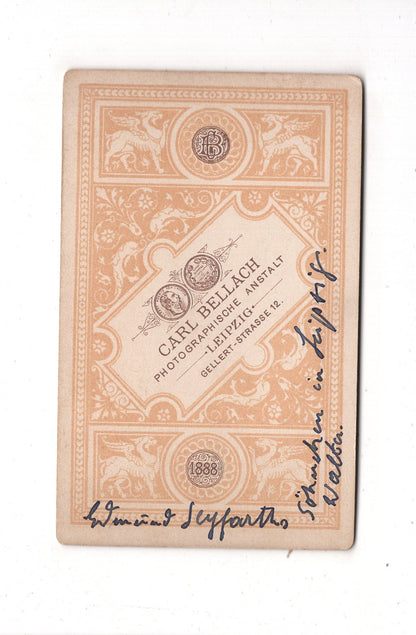 CB
CARL BELLACH
PHOTOGRAPHISCHE ANSTALT
·LEIPZIG·
GELLERT-STRASSE 12.
1888
Edmund Seyfarths
Söhnchen in Leipzig.
Walter.